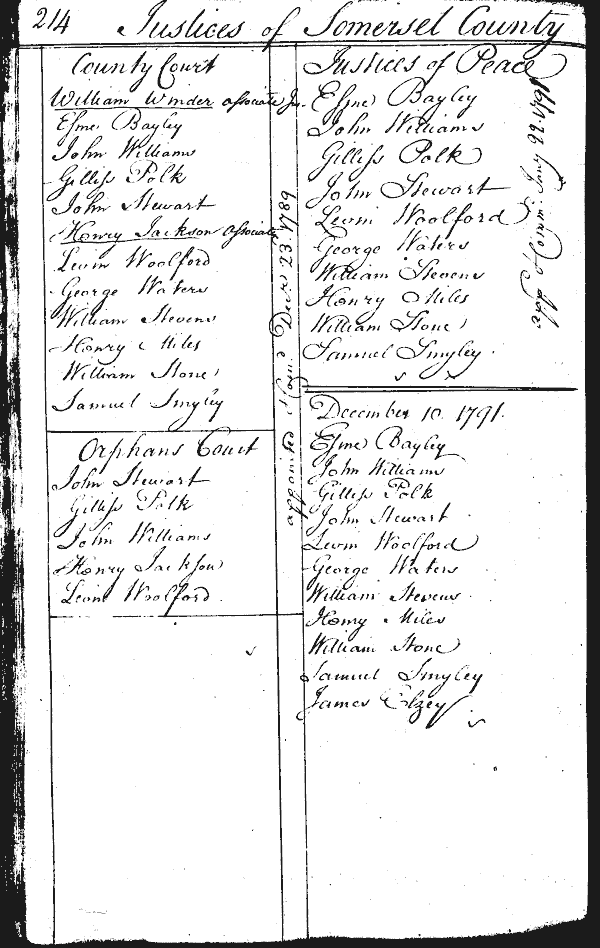 214 Justices of Somerset County
County Court
William Winder associate Jus.
Esme Bayley
John Williams
Gilliss Polk
John Stewart
Henry Jackson Associate
Levin Woolford
George Waters
William Stevens
Henry Miles
William Stone
Samuel Smyley
Orphans Court
John Stewart
Gilliss Polk
John Williams
Henry Jackson
Levin Woolford
appointed & Comd Decr 23. 1789
Justices of Peace
Esme Bayley
John Williams
Gilliss Polk
John Stewart
Levin Woolford
George Waters
William Stevens
Henry Miles
William Stone
Samuel Smyley
app & Comm: Jany 22. 1791
December 10. 1791.
Esme Bayley
John Williams
Gilliss Polk
John Stewart
Levin Woolford
George Waters
William Stevens
Henry Miles
William Stone
Samuel Smyley
James Elzey